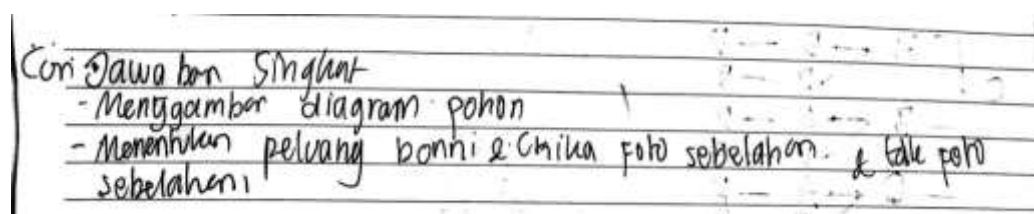 Cari Jawaban Singkat
- Menggambar diagram pohon
- Menentukan peluang bonni & Chika foto sebelahan. & tdk foto
sebelahan